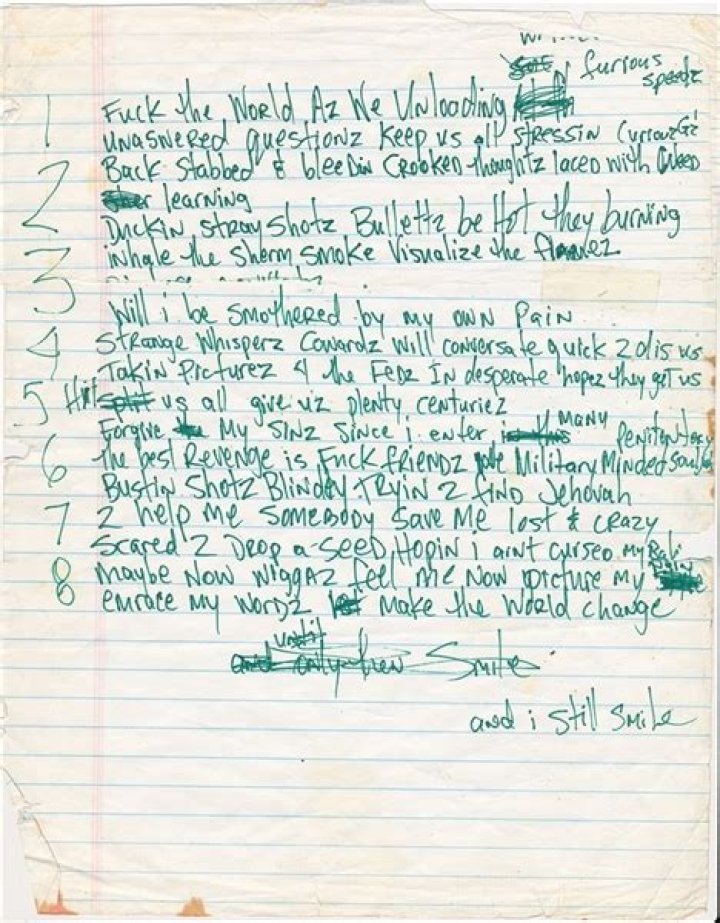 furious
speedz
1 Fuck the World Az We Unloading
unaswered questionz keep us all stressin
Back stabbed & bleedin crooked thoughtz laced with weed
2 learning
Duckin stray shotz Bulletz be Hot they burning
inhale the sherm smoke visualize the flamez
3
Will i be smothered by my own pain
4 strange whisperz cowardz will conversate quick 2 dis us
Takin picturez 4 the Fedz In desperate hopez they get us
5 Hit split us all give uz plenty centuriez
Forgive My SINZ since i enter many penitentiary
6 the best Revenge is Fuck friendz we Military Minded
Bustin shotz Blindly tryin 2 find Jehovah
7 2 help me somebody save me lost & crazy
Scared 2 Drop a seed Hopin i aint cursed my
8 Maybe Now Niggaz feel me Now picture my pain
emrace my wordz make the world change
until
and only then Smile
and i still smile